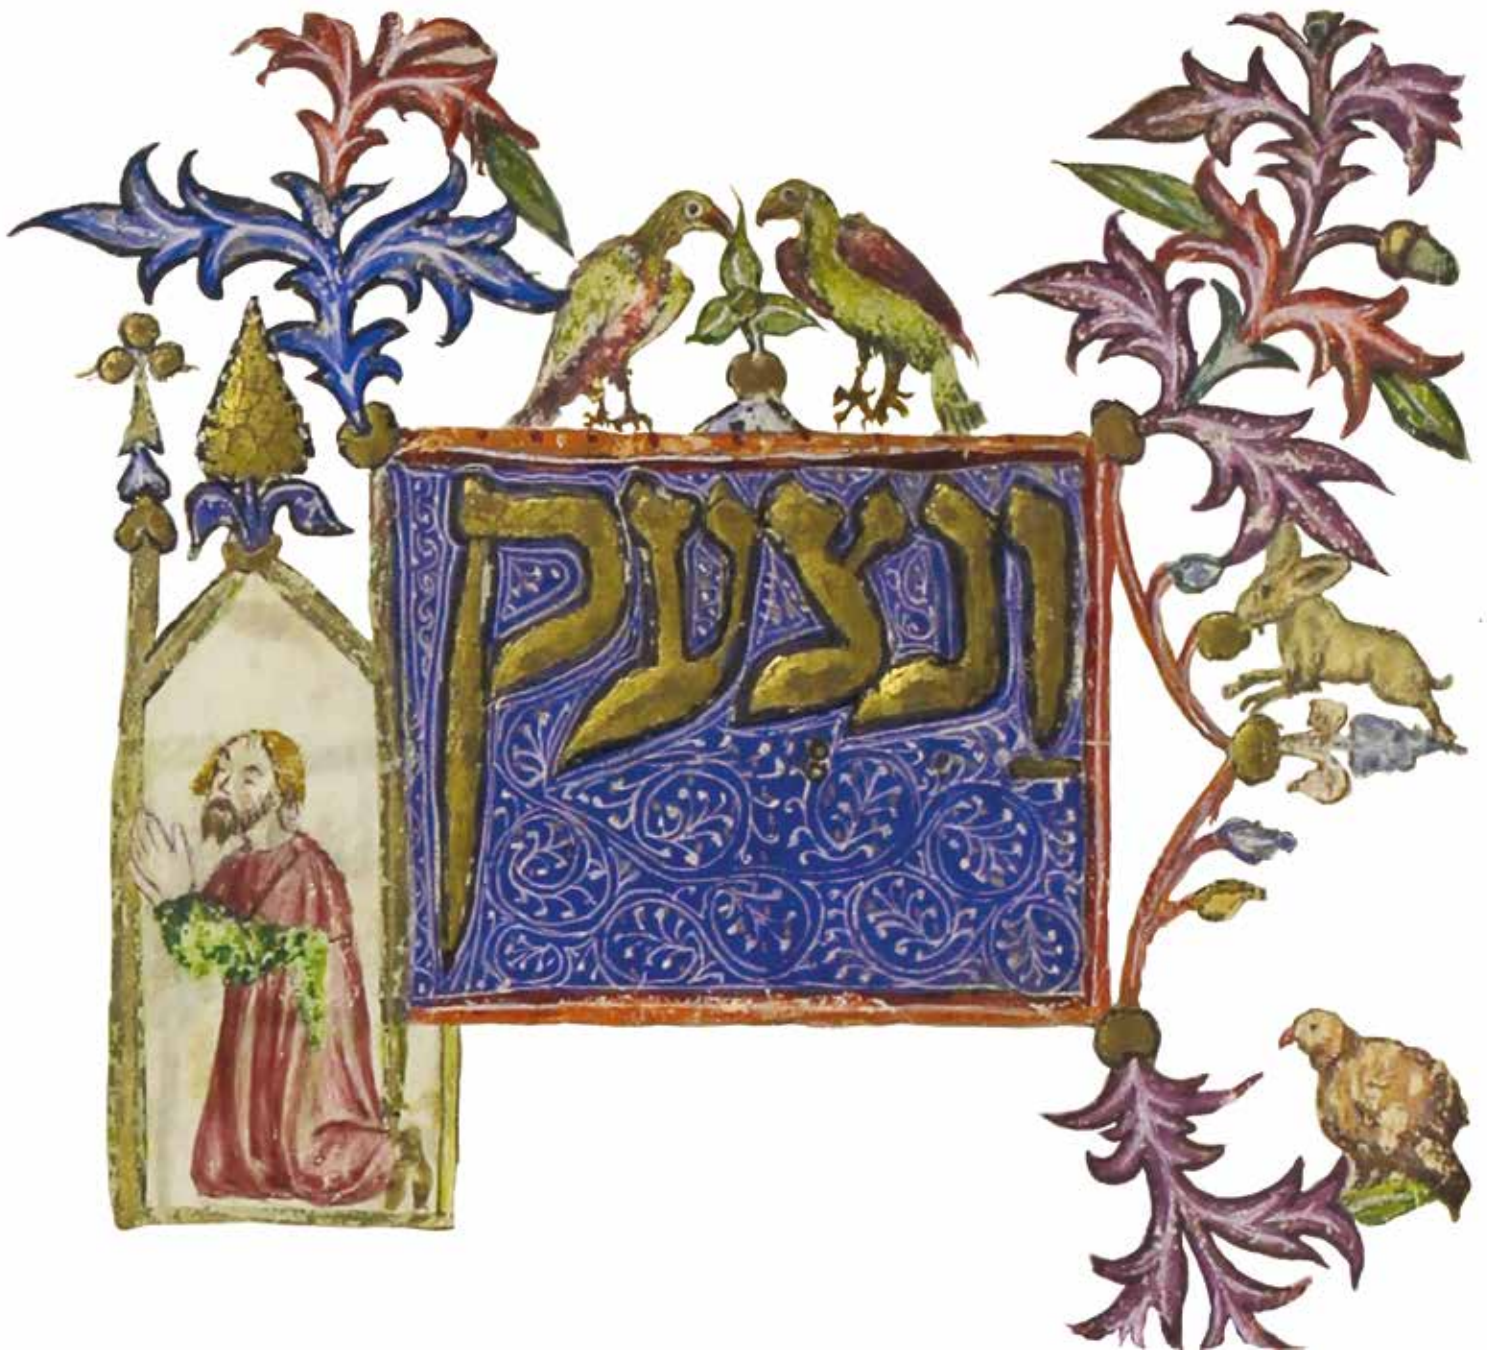 וַנִצְעק